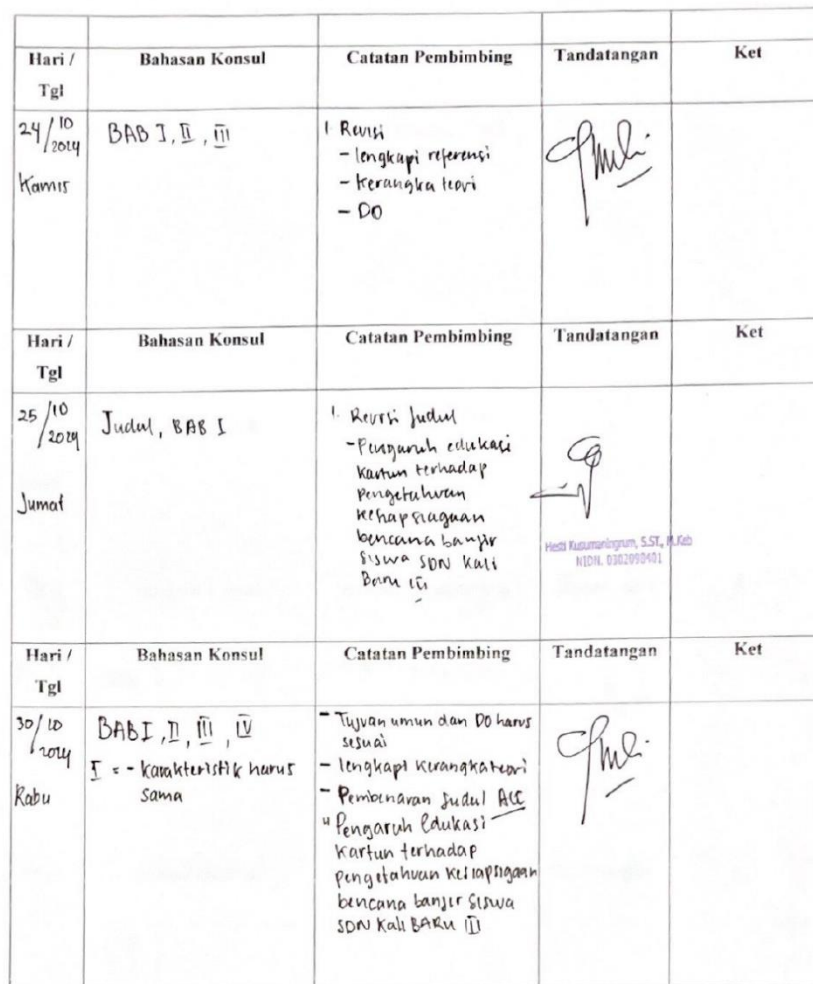 Hari / Tgl Bahasan Konsul Catatan Pembimbing Tandatangan Ket
24/10 2024 Kamis
BAB I, II, III
1. Revisi
- lengkapi referensi
- Kerangka teori
- DO
Hari / Tgl Bahasan Konsul Catatan Pembimbing Tandatangan Ket
25/10 2024 Jumat
Judul, BAB I
1. Revisi Judul
- Pengaruh edukasi
kartun terhadap
pengetahuan
kesiapsiagaan
bencana banjir
siswa SDN Kali
Baru III
Hesti Kusumaningrum, S.ST., M.Keb
NIDN. 0302090401
Hari / Tgl Bahasan Konsul Catatan Pembimbing Tandatangan Ket
30/10 2024 Rabu
BAB I, II, III, IV
I = - karakteristik harus
sama
- Tujuan umun dan DO harus
sesuai
- lengkapi kerangka teori
- Pembenaran Judul ACC
" Pengaruh Edukasi
kartun terhadap
pengetahuan kesiapsigaan
bencana banjir siswa
SDN Kali BARu III